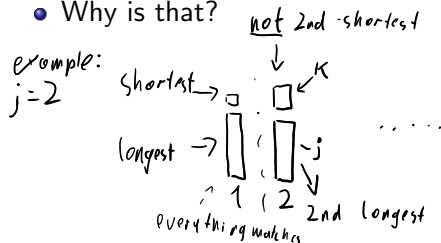 • Why is that?
not 2nd-shortest
example:
j=2
shortest
K
longest
j
1 2
2nd longest
everything matches
.....